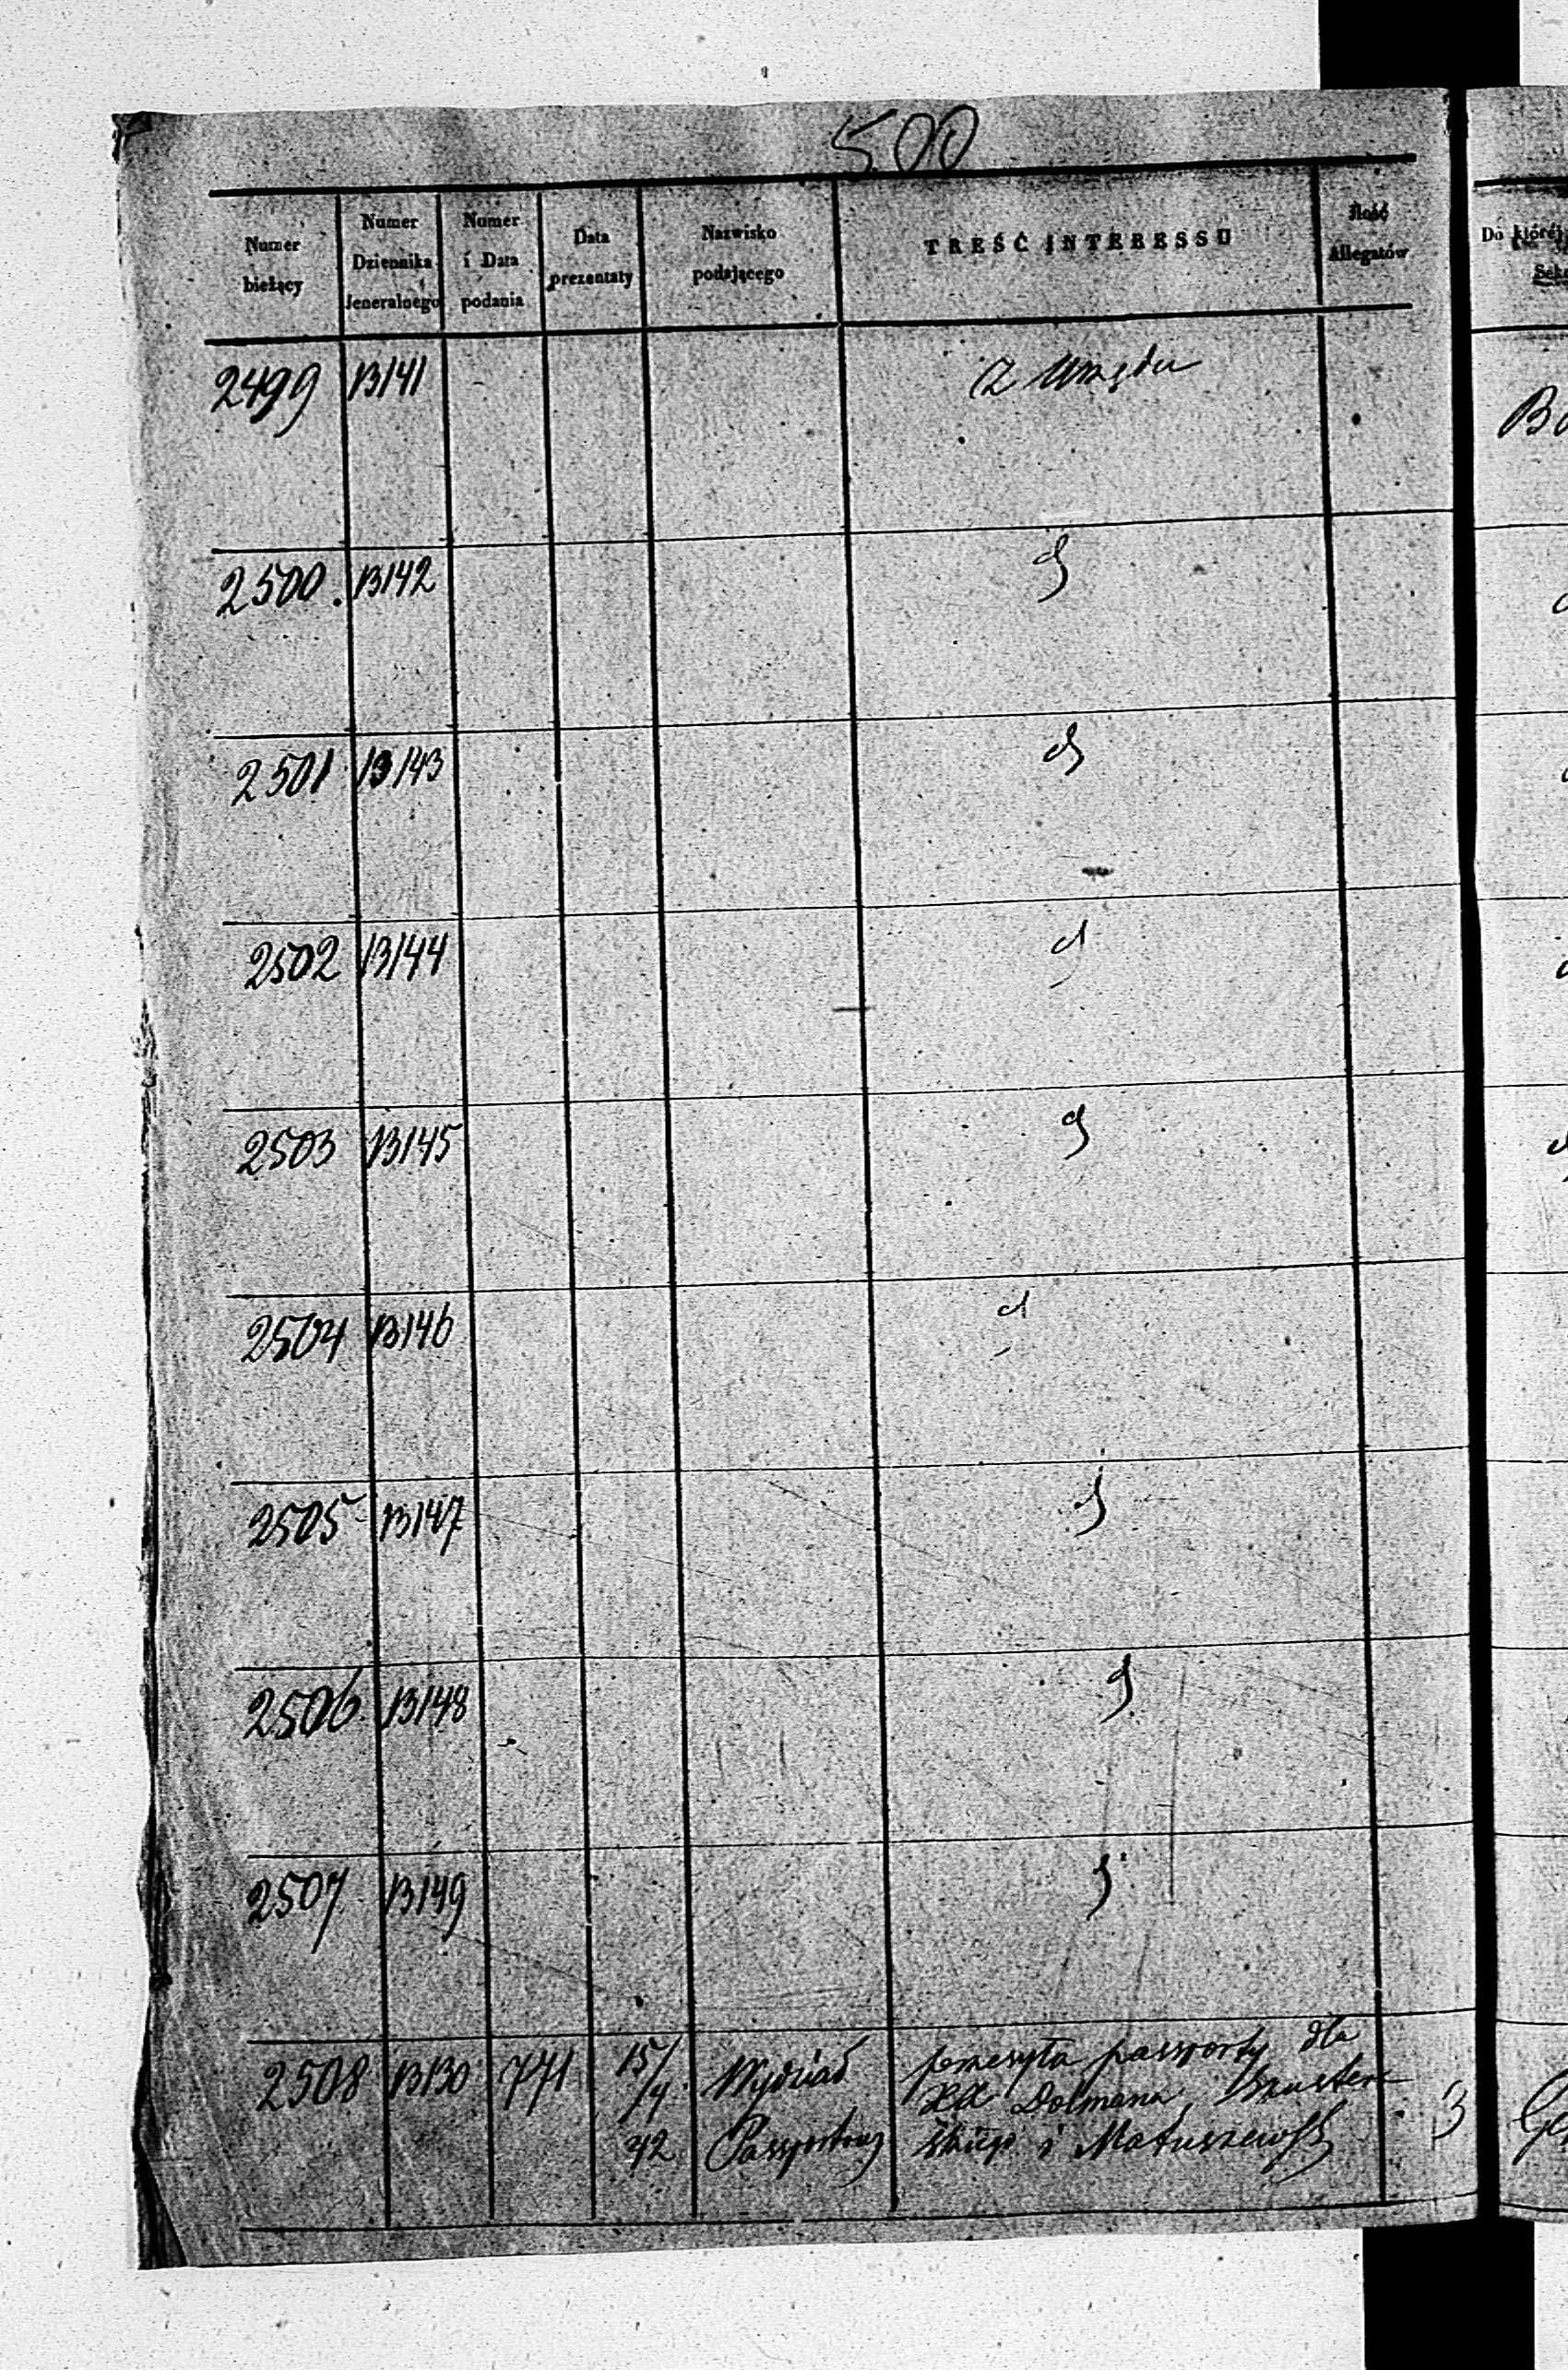 500
Numer bieżący
Numer Dziennika Jeneralnego
Numer i Data podania
Data prezentaty
Nazwisko podającego
TREŚĆ INTERESSU
Ilość Allegatów
Do której
2499 13141 Z Urzędu
2500. 13142 d
2501 13143 d
2502 13144 d
2503 13145 d
2504 13146 d
2505 13147 d
2506 13148 d
2507 13149 d
2508 13130 771 15/4 42 Wydział Passportowy przesyła passporty dla
XX Dolmana,
skiego i Matuszewsk 3